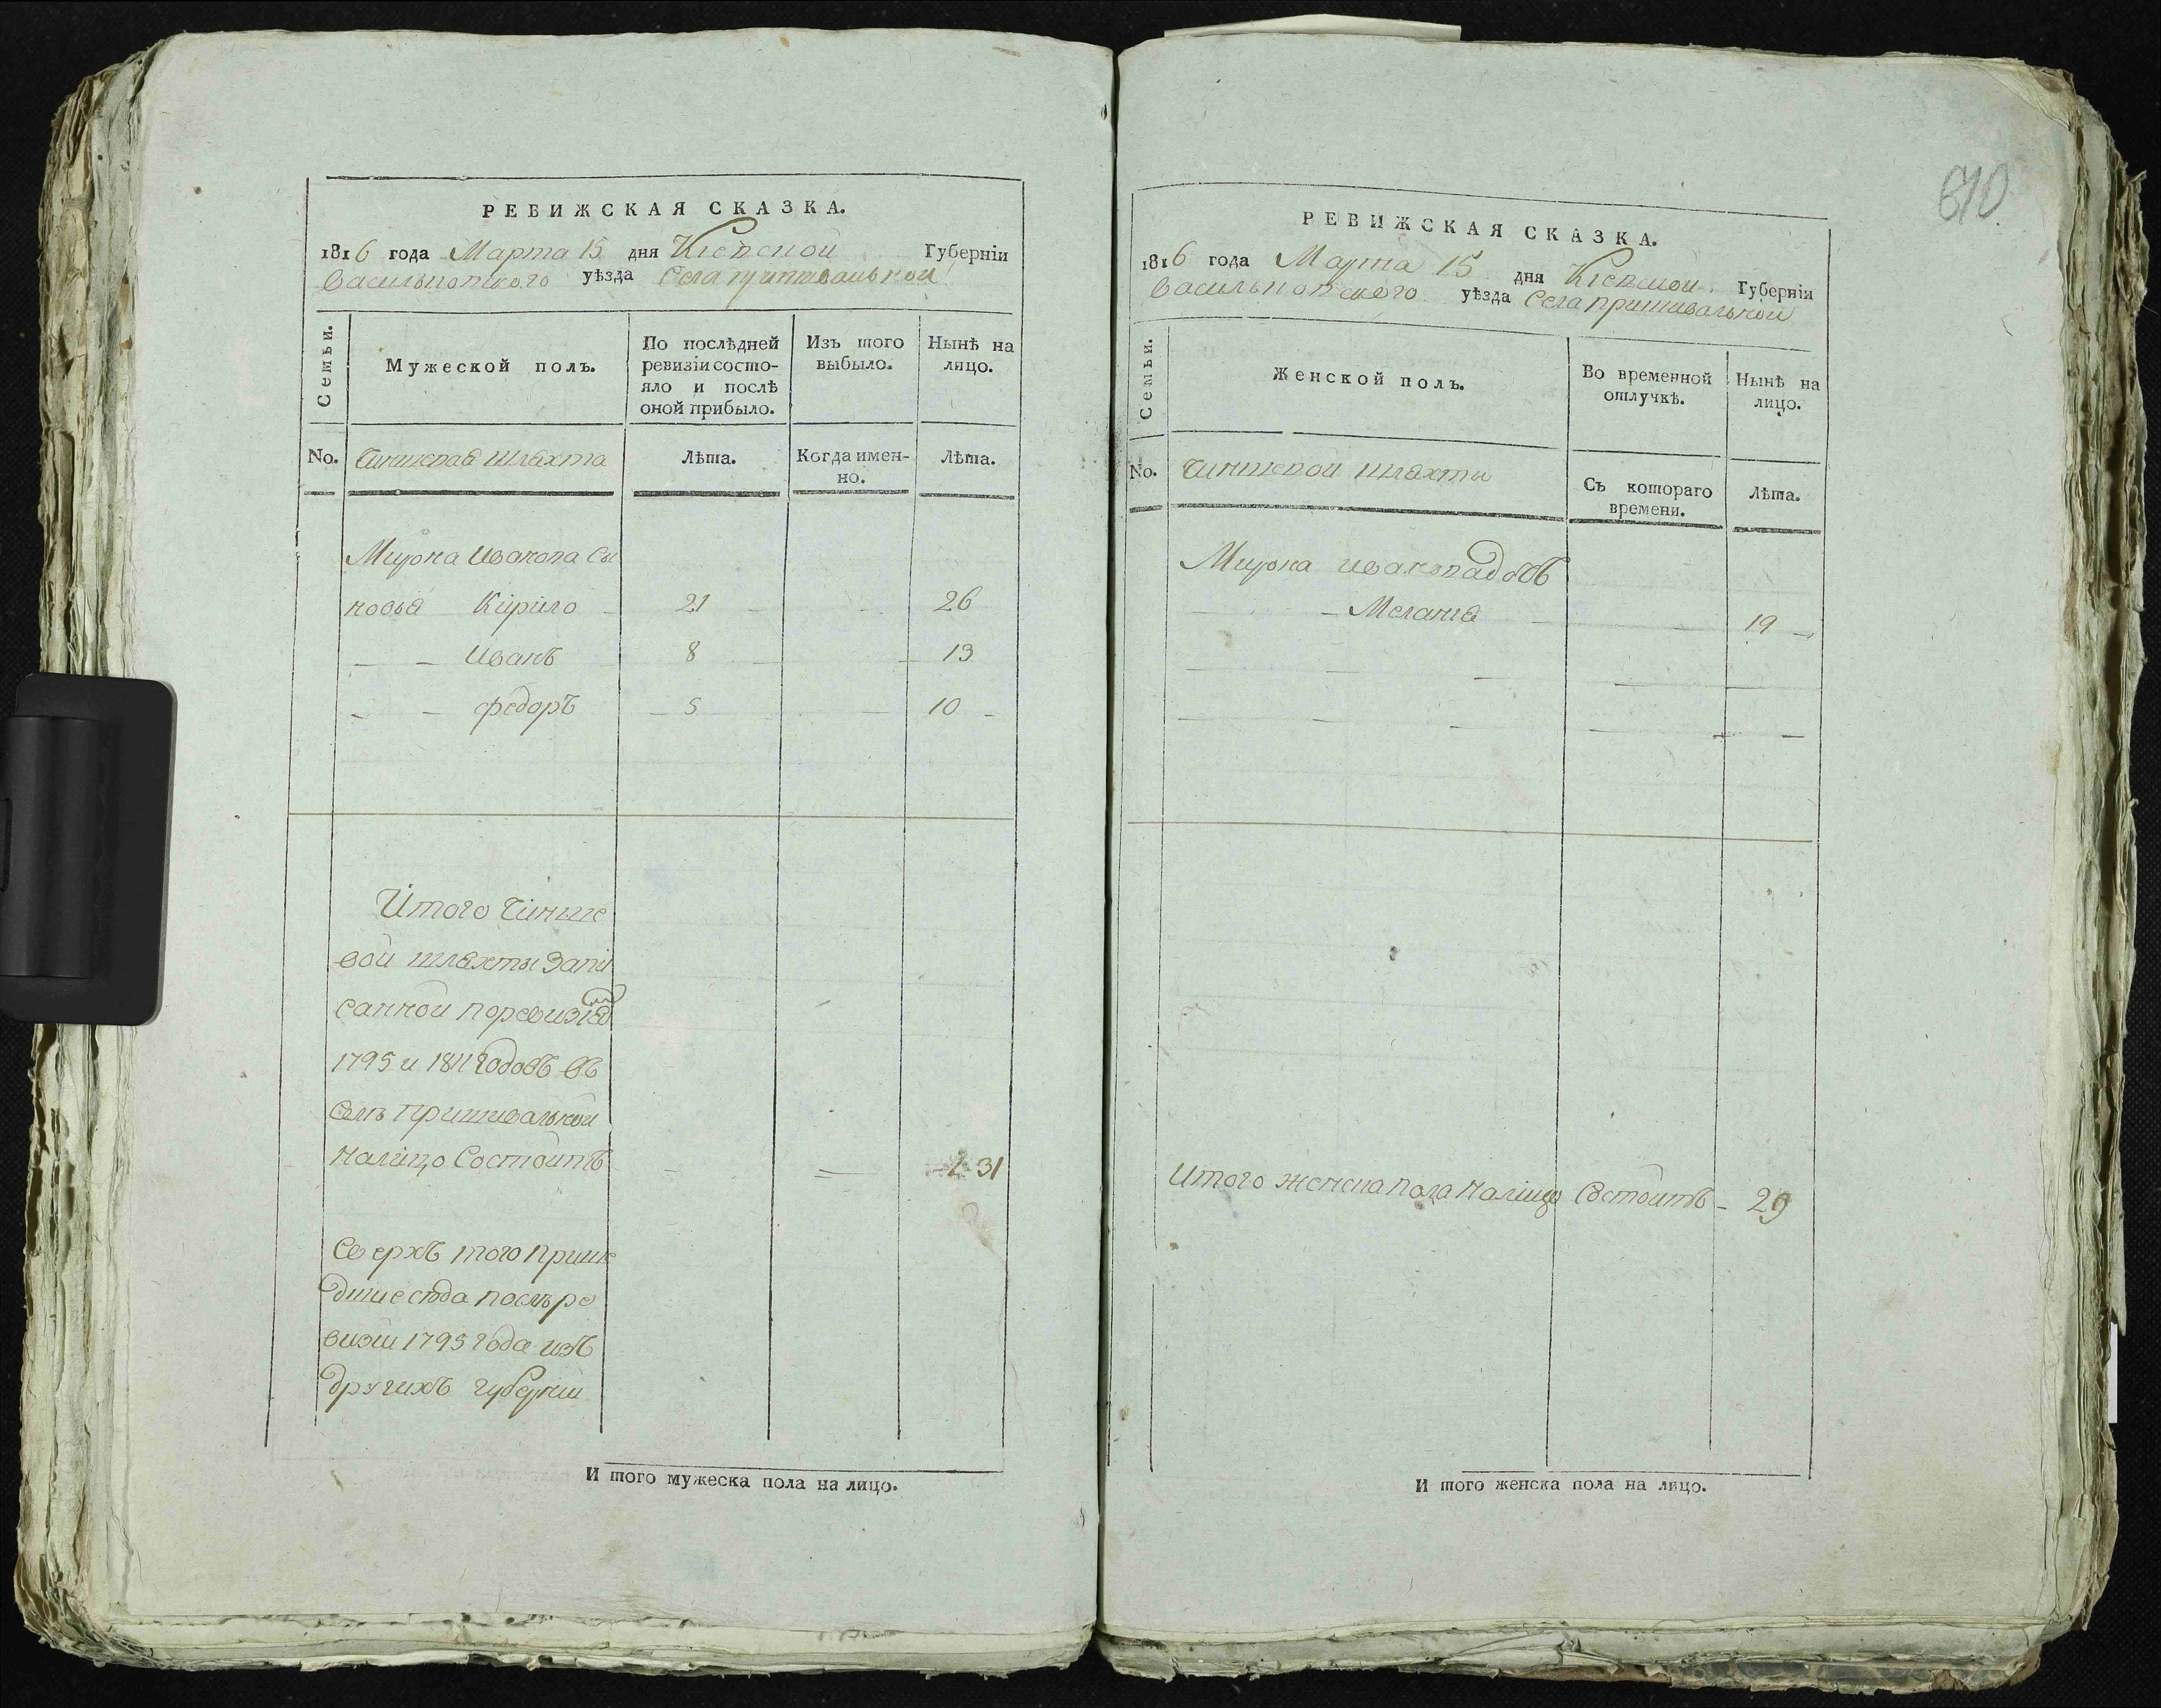 РЕВИЖСКАЯ СКАЗКА.
1816 года Марта 15 дня Кіевской Губерніи
Васильковского уѣзда Села Пришивальной
Семьи.
Мужеской полъ.
По послѣдней ревизіи состояло и послѣ оной прибыло.
Изъ того выбыло.
Нынѣ на лицо.
No. Чиншевая шляхта
Лѣта.
Когда именно.
Лѣта.
Мирона Иванова сы
новья Кірило 21 26
Иванъ 8 13
Федоръ 5 10
Итого Чинше
вой шляхты запи
санной по ревизіям
1795 и 1811 годовъ въ
селѣ Пришивальной
налицо состоитъ 31
Сверхъ того прише
дшие сюда послѣ ре
визіи 1795 года изъ
другихъ губерніи
И того мужеска пола на лицо.
670
РЕВИЖСКАЯ СКАЗКА.
1816 года Марта 15 дня Кіевской Губерніи
Васильковского уѣзда Села Пришивальной
Семьи.
Женской полъ.
Во временной отлучкѣ.
Нынѣ на лицо.
No. Чиншевой шляхты
Съ котораго времени.
Лѣта.
Мирона Иванова дочь
Меланія 19
Итого женска пола налицо состоитъ 29
И того женска пола на лицо.